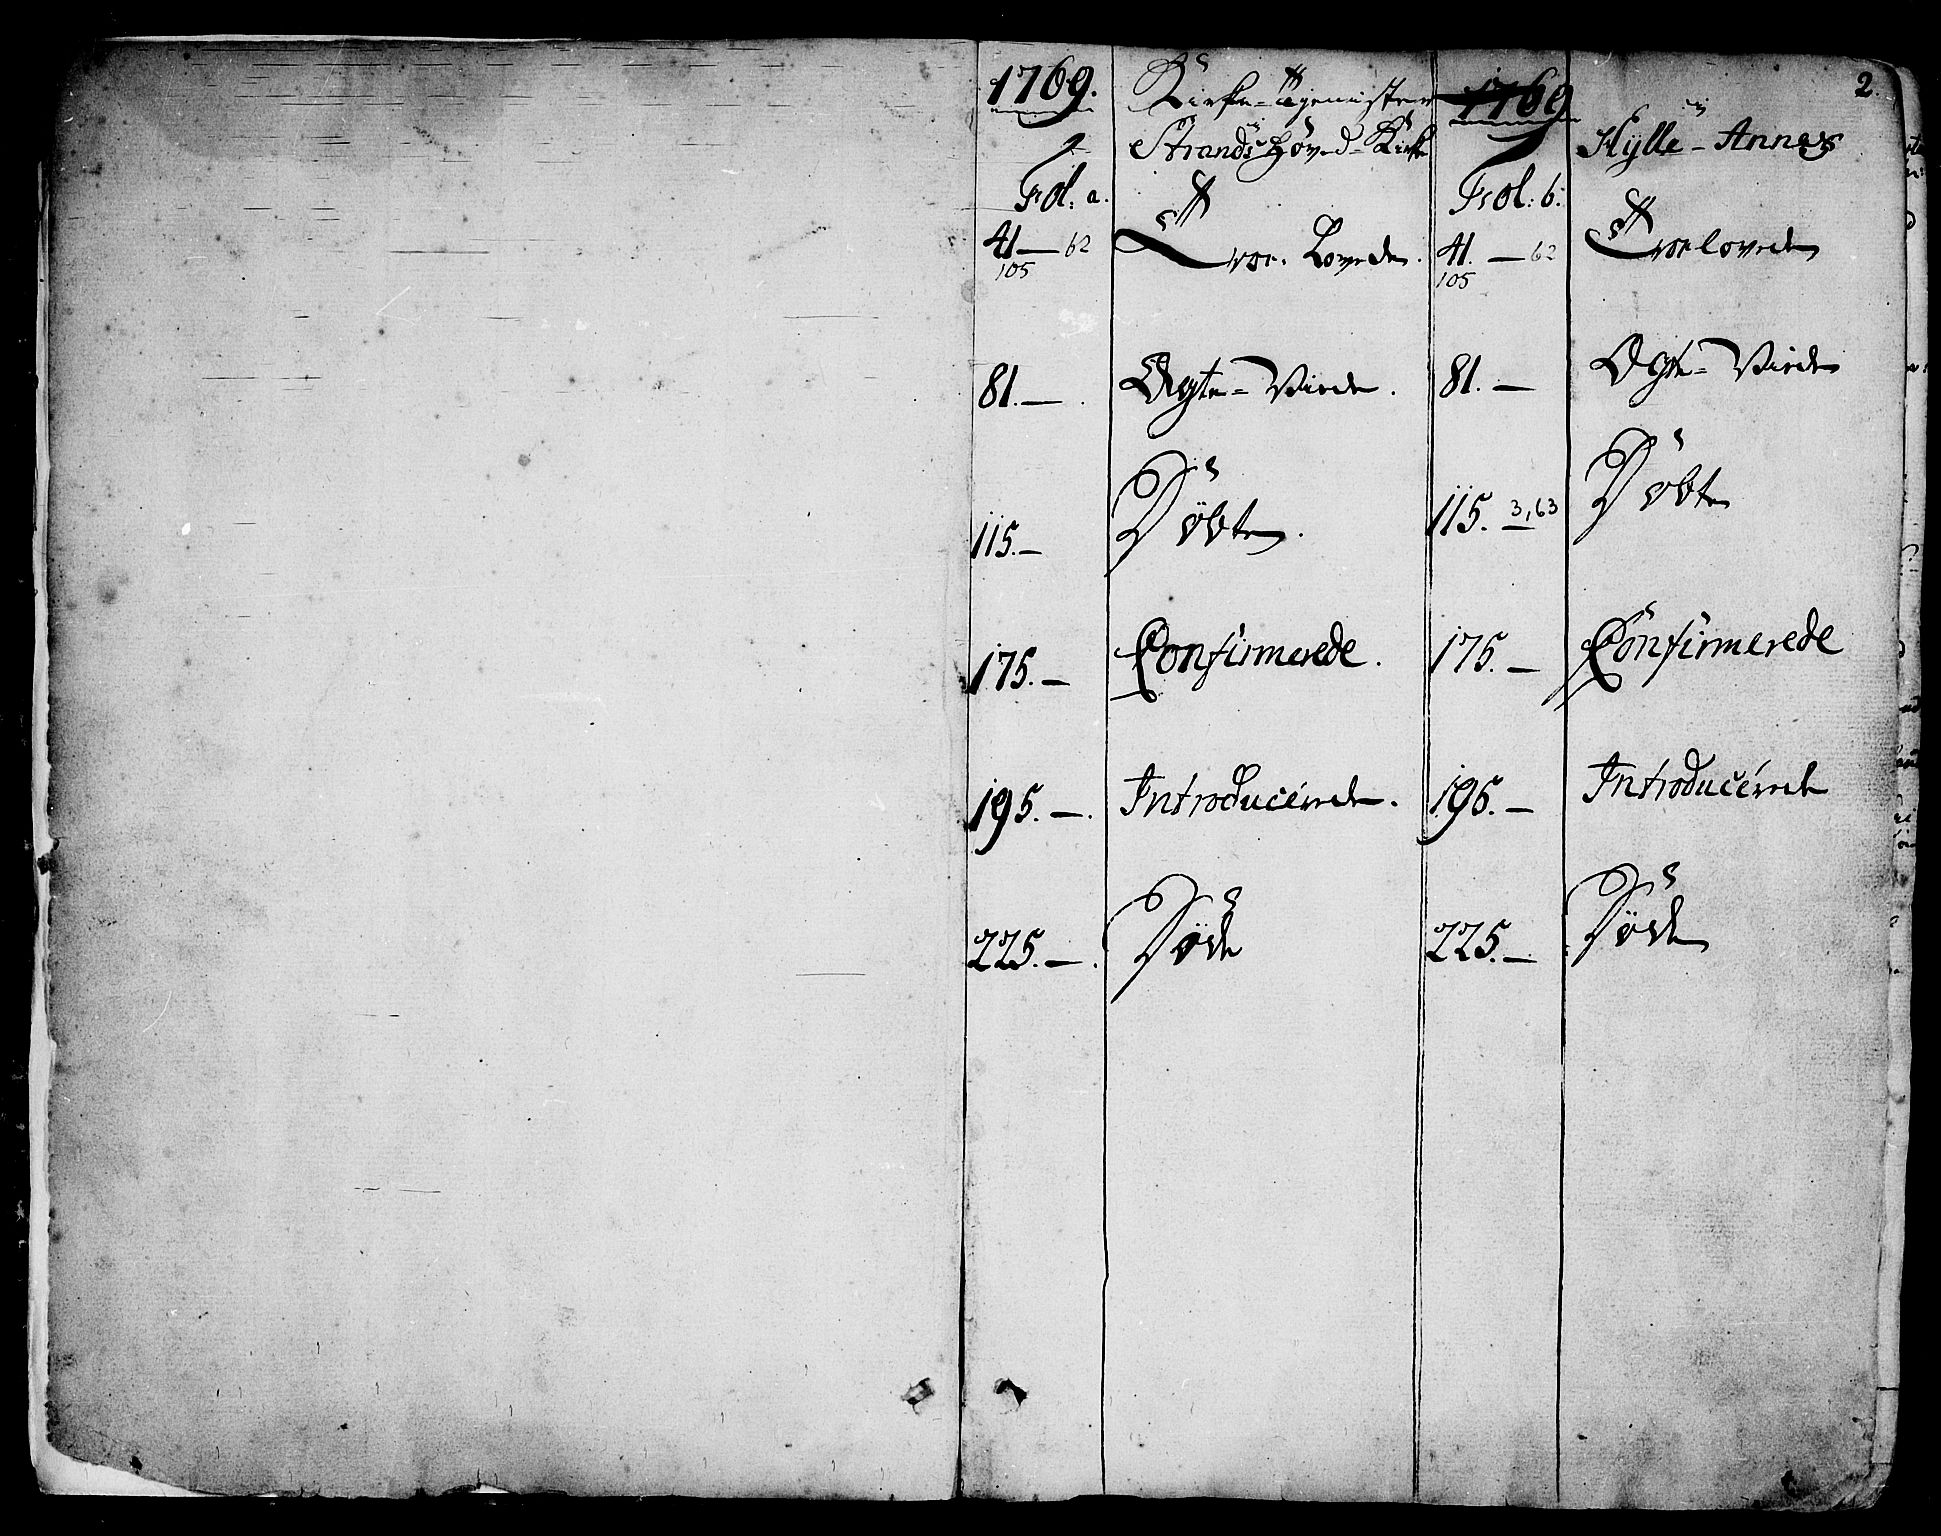 2.
1769.
Kirke-Ministerii
Strands Hoved-Kirke
Fol: a.
41 — 62
105
Troe-Lovede.
81. —
Ægte-Viede.
115. —
Döbte.
175. —
Confirmerede.
195. —
Introducerede.
225. —
Döde
1769
Hylle-Annex
Fol: b.
41. — 62
105
Troelovede
81. —
Ægte-Viede
115. — 3,63
Döbte
175. —
Confirmerede
195. —
Introducerede
225. —
Döde